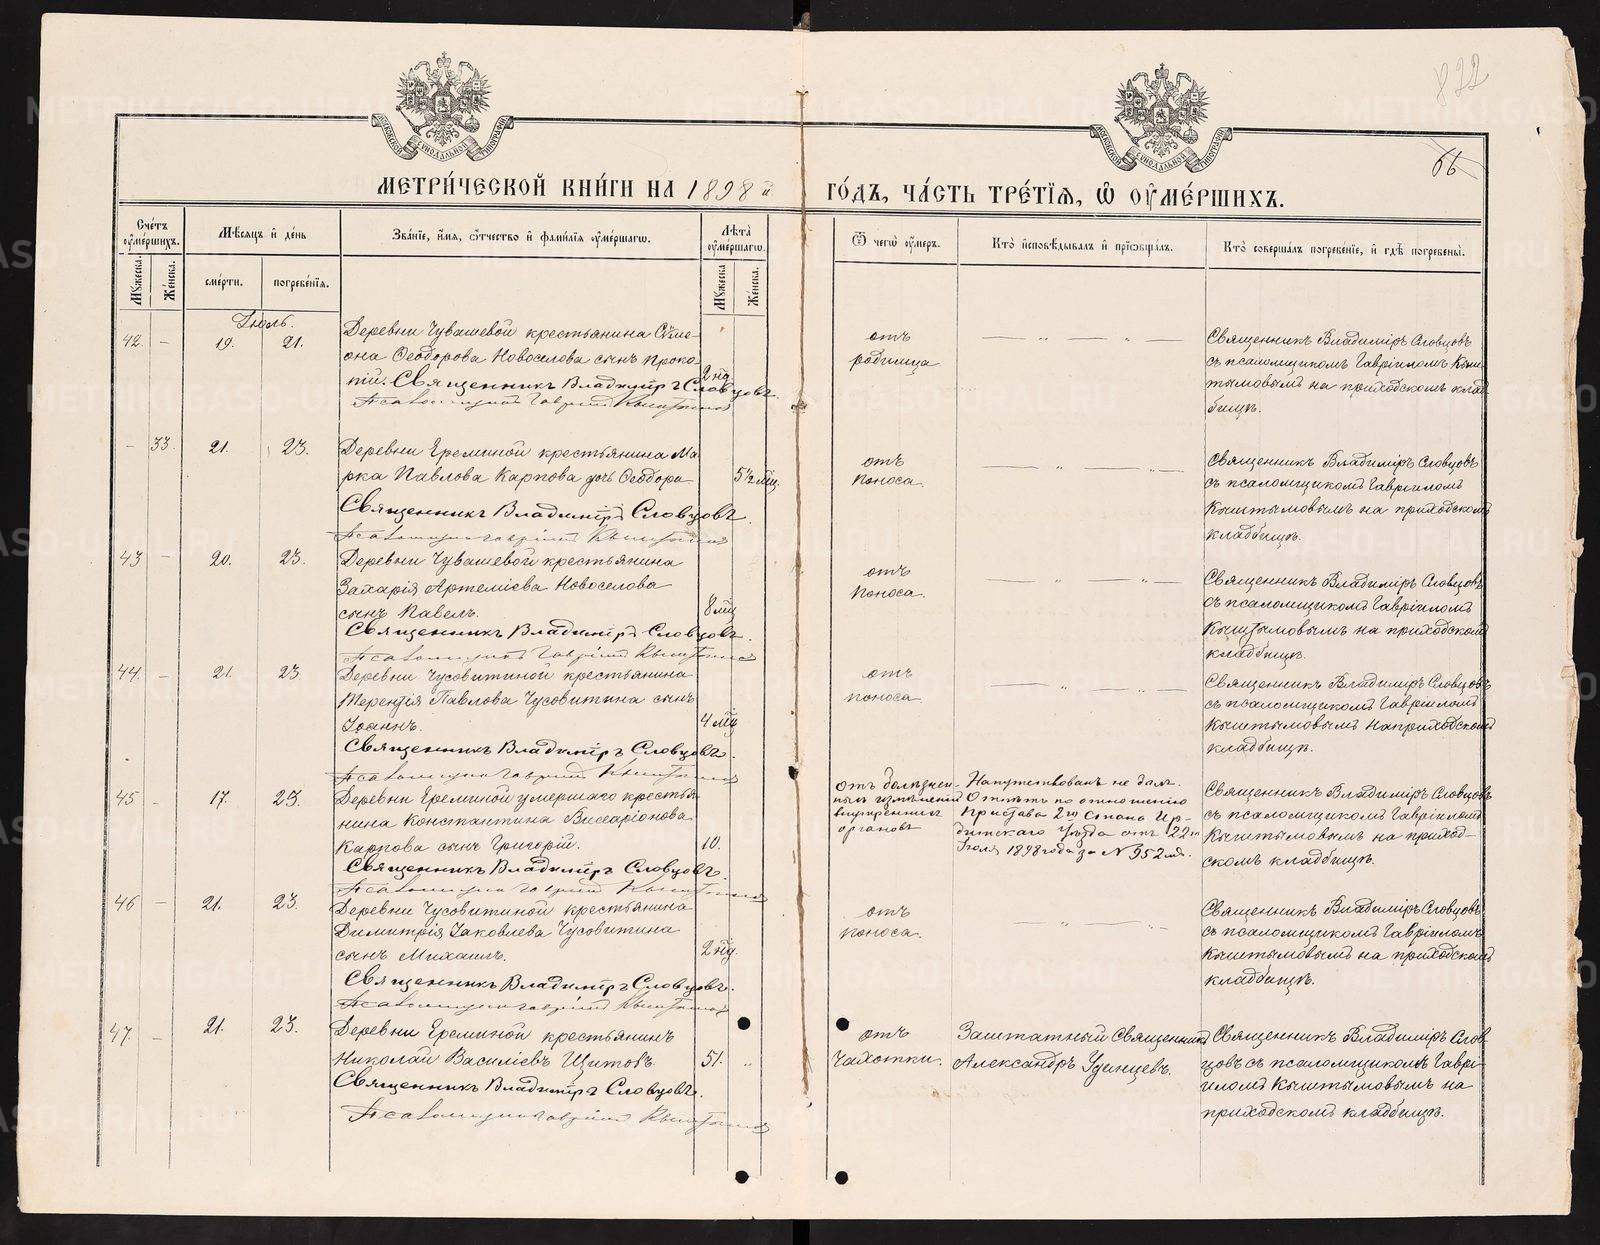 822
66
МОСКОВСКОЙ СУНОДАЛЬНОЙ ТИПОГРАФІИ
МОСКОВСКОЙ СУНОДАЛЬНОЙ ТИПОГРАФІИ
МЕТРИ́ЧЕСКОЙ КНИ́ГИ НА 1898й ГО́ДЪ, ЧА́СТЬ ТРЕ́ТІЯ, Ѡ ОУ҆МЕ́РШИХЪ.
Сче́тъ оу҆ме́ршихъ.
Му́жеска.
Же́нска.
Мѣ́сяцъ и҆ де́нь
сме́рти.
погребе́нія.
Зва́ніе, и҆́мя, ѻ҆́тчество и҆ фами́лія оу҆ме́ршагѡ.
Лѣ́та оу҆ме́ршагѡ.
Му́жеска
Же́нска.
Ѿ чегѡ̀ оу҆́меръ.
Кто̀ и҆сповѣ́дывалъ и҆ прїѡбща́лъ.
Кто̀ соверша́лъ погребе́ніе, и҆ гдѣ̀ погребены̀.
Іюль.
42. – 19. 21.
Деревни Чувашевой крестьянина Симе-
она Ѳеодорова Новоселова сынъ Проко-
пій. Священникъ Владиміръ Словцовъ.
Псаломщикъ Гавріилъ Кыштымовъ
2 нд.
отъ
родимца
Священникъ Владиміръ Словцовъ
съ псаломщикомъ Гавріиломъ Кыш-
тымовымъ на приходскомъ клад-
бищѣ.
– 33 21. 23.
Деревни Ереминой крестьянина Ма-
рка Павлова Карпова дочь Ѳеодора
Священникъ Владиміръ Словцовъ.
Псаломщикъ Гавріилъ Кыштымовъ
5½ мц.
отъ
поноса.
Священникъ Владиміръ Словцовъ
съ псаломщикомъ Гавріиломъ
Кыштымовымъ на приходскомъ
кладбищѣ.
43 – 20. 23.
Деревни Чувашевой крестьянина
Захарія Артеміева Новоселова
сынъ Павелъ.
Священникъ Владиміръ Словцовъ.
Псаломщикъ Гавріилъ Кыштымовъ
8 мц
отъ
поноса.
Священникъ Владиміръ Словцовъ
съ псаломщикомъ Гавріиломъ
Кыштымовымъ на приходскомъ
кладбищѣ.
44. – 21. 23
Деревни Чусовитиной крестьянина
Терентія Павлова Чусовитина сынъ
Іоаннъ.
Священникъ Владиміръ Словцовъ.
Псаломщикъ Гавріилъ Кыштымовъ
4 мц
отъ
поноса
Священникъ Владиміръ Словцовъ
съ псаломщикомъ Гавріиломъ
Кыштымовымъ на приходскомъ
кладбищѣ.
45 – 17. 23.
Деревни Ереминой умершаго крестья-
нина Константина Виссаріонова
Карпова сынъ Григорій.
Священникъ Владиміръ Словцовъ.
Псаломщикъ Гавріилъ Кыштымовъ
10.
отъ болѣзнен-
ныхъ измѣненій
внутреннихъ
органовъ
Напутствованъ не былъ.
Отпѣтъ по отношенію
Пристава 2го Стана Ир-
битскаго Уѣзда отъ 22го
Іюля 1898 года за № 952мъ.
Священникъ Владиміръ Словцовъ
съ псаломщикомъ Гавріиломъ
Кыштымовымъ на приход-
скомъ кладбищѣ.
46 – 21. 23.
Деревни Чусовитиной крестьянина
Димитрія Іаковлева Чусовитина
сынъ Михаилъ.
Священникъ Владиміръ Словцовъ.
Псаломщикъ Гавріилъ Кыштымовъ
2 нд.
отъ
поноса.
Священникъ Владиміръ Словцовъ
съ псаломщикомъ Гавріиломъ
Кыштымовымъ на приходскомъ
кладбищѣ.
47. – 21. 23.
Деревни Ереминой крестьянинъ
Николай Василіевъ Щитовъ.
Священникъ Владиміръ Словцовъ.
Псаломщикъ Гавріилъ Кыштымовъ
51.
отъ
чахотки.
Заштатный Священникъ
Александръ Удинцевъ.
Священникъ Владиміръ Слов-
цовъ съ псаломщикомъ Гаврі-
иломъ Кыштымовымъ на
приходскомъ кладбищѣ.
METRIKI.GASO-URAL.RU